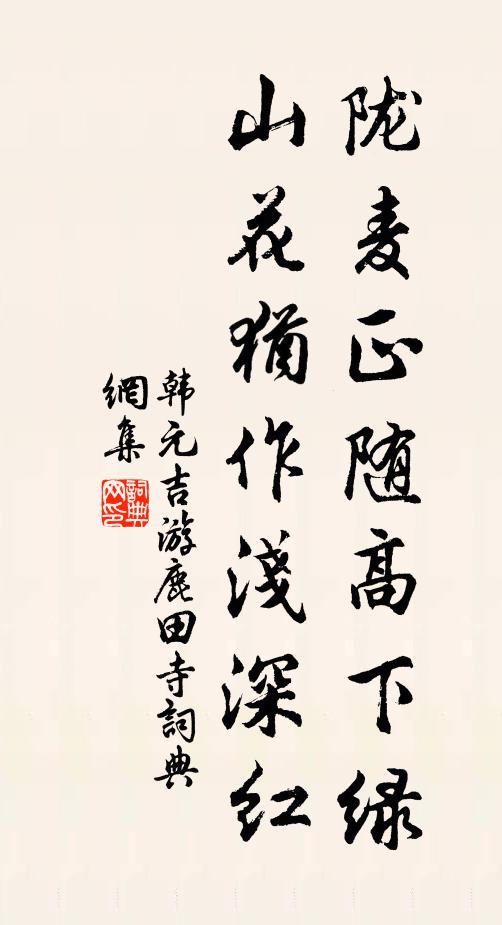 陇麦正随高下绿
山花犹作淺深红
韩元吉游鹿田寺詞典
網集
詞典
网印